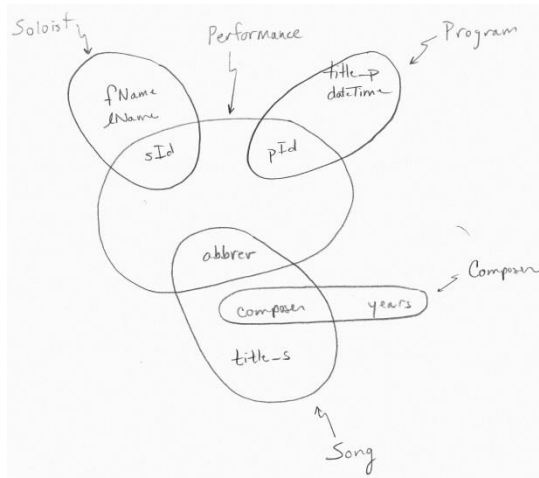 Soloist
Performance
Program
fName
lName
title_p
dateTime
sId
pId
abbrev
Composer
composer years
title_s
Song